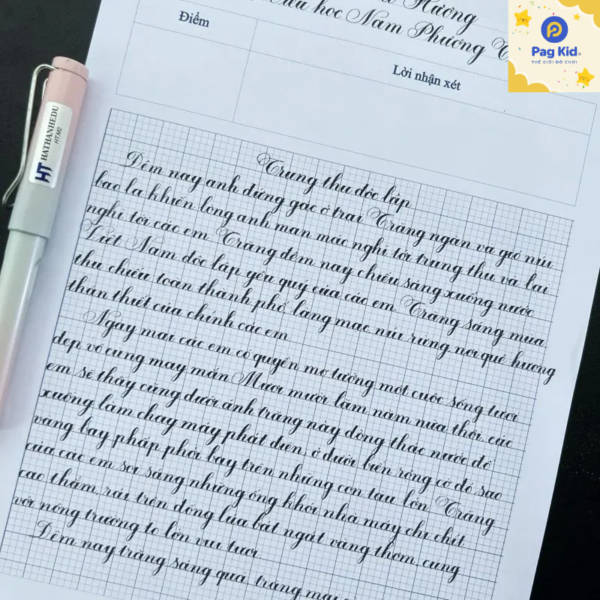 Hương
Tiểu học Nam Phương
Điểm
Lời nhận xét
Pag Kid
THẾ GIỚI ĐỒ CHƠI
HT HATHANHEDU
Trung thu độc lập
Đêm nay anh đứng gác ở trại Trăng ngàn và gió núi
bao la khiến lòng anh man mác nghĩ tới trung thu và lại
nghĩ tới các em Trăng đêm nay chiếu sáng xuống nước
Việt Nam độc lập yêu quý của các em Trăng sáng mùa
thu chiếu toàn thành phố làng mạc núi rừng nơi quê hương
thân thiết của chính các em
Ngày mai các em có quyền mơ tưởng một cuộc sống tươi
đẹp vô cùng may mắn Mươi mười lăm năm nữa thôi các
em sẽ thấy cũng dưới ánh trăng này dòng thác nước đổ
xuống làm chạy máy phát điện, ở dưới biển rộng cờ đỏ sao
vàng bay phấp phới bay trên những con tàu lớn Trăng
của các em soi sáng những ống khói nhà máy chi chít
cao thẳm, rải trên đồng lúa bát ngát vàng thơm, cùng
với nông trường to lớn vui tươi
Đêm nay trăng sáng quá, trăng mai